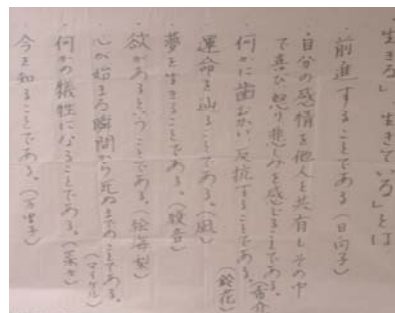 「生きる」、生きている」とは
・前進することである(日向子)
・自分の感情を他人と共有しその中
で喜び怒り悲しみを感じることである。
(杏介)
・何かに歯むかい反抗することである。
(鈴花)
・運命を辿ることである。(凪)
・夢を生きることである。(駿音)
・欲があるということである。(絵海梨)
・心が始まる瞬間から死ぬまでのことである。
(マイケル)
・何かの犠牲になることである。(菜々)
・今を知ることである。(万里子)